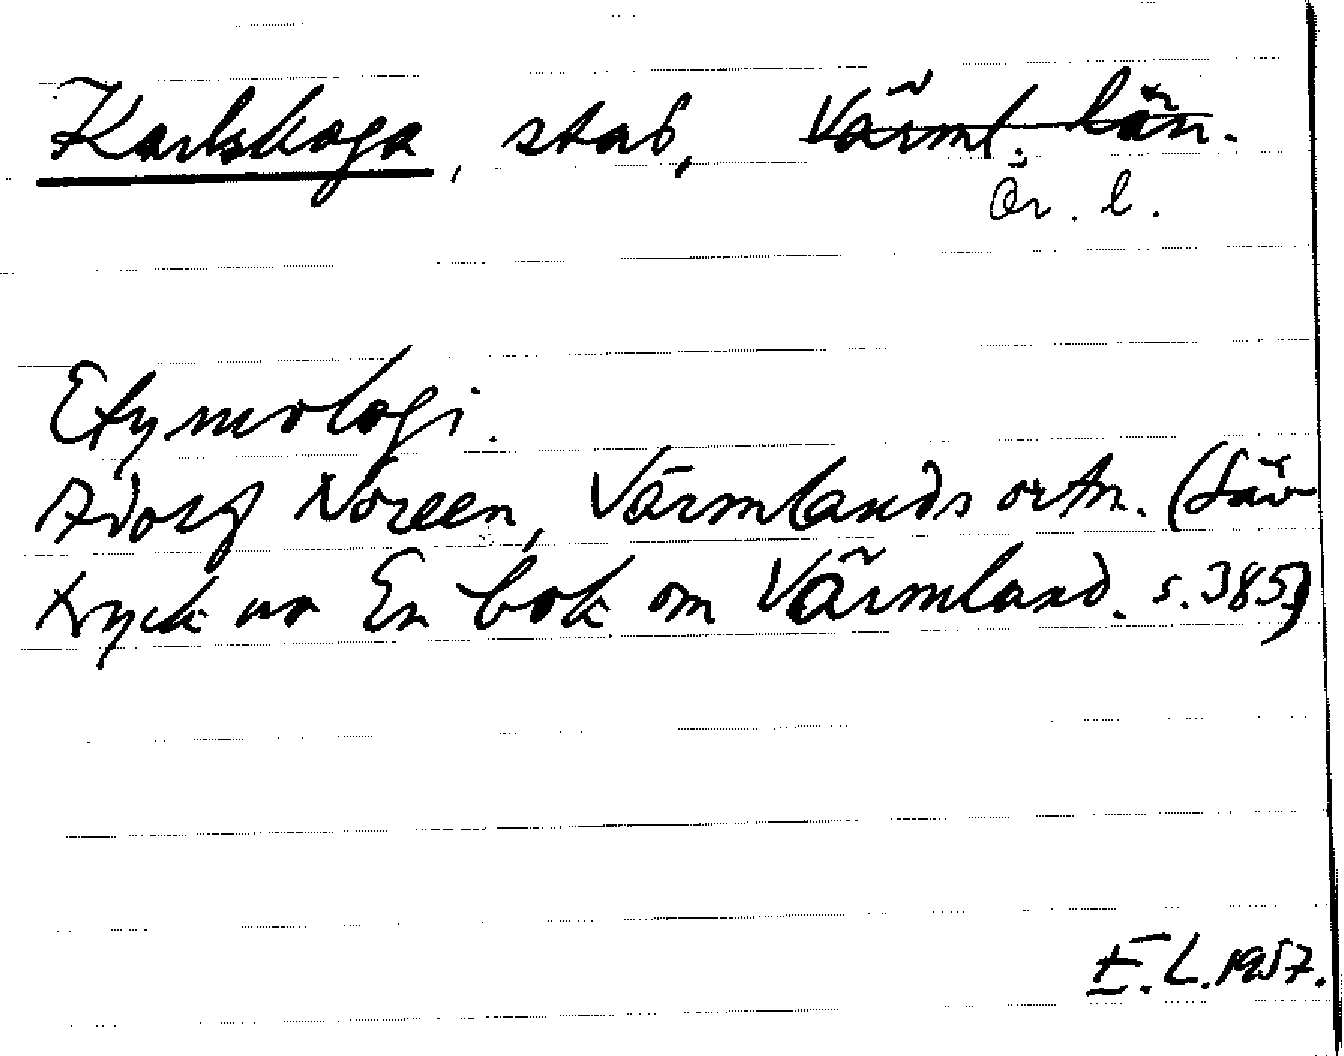 Karlskoga, stad, Värml. län.
Ör. l.
Etymologi.
Adolf Noreen, Värmlands ortn. (Sär
tryck ur En bok om Värmland. s. 385)
E. L. 1957.